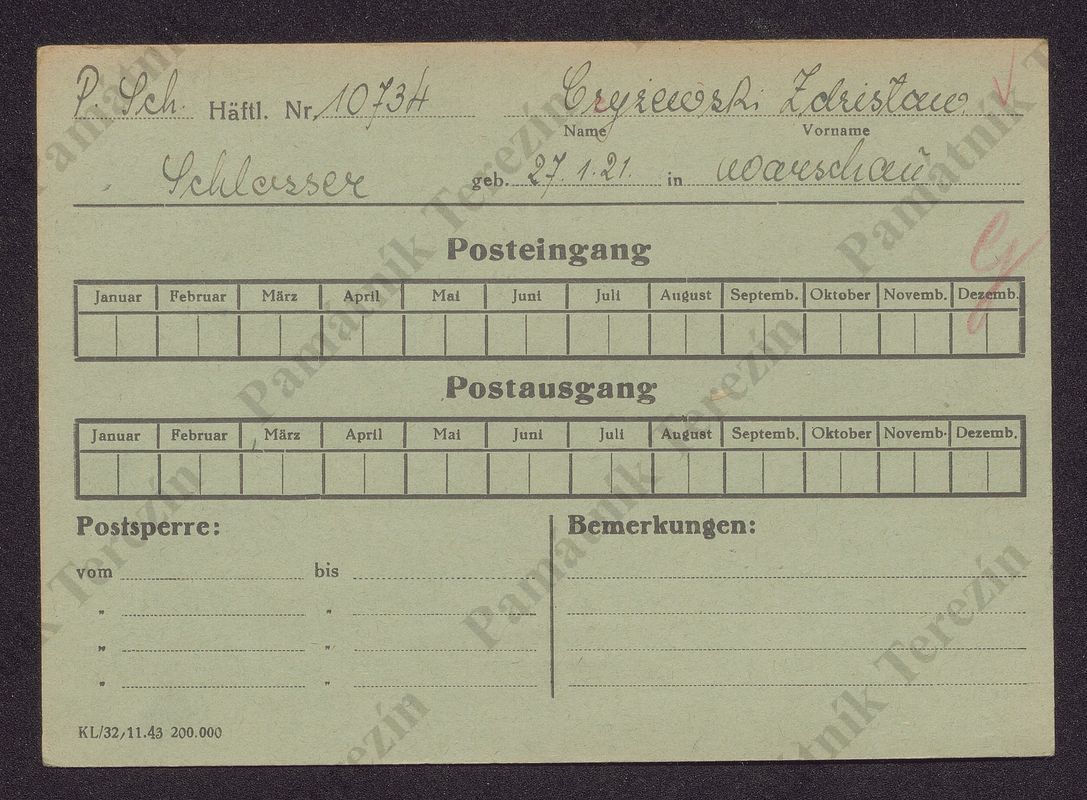 P. Sch. Häftl. Nr. 10734 Czyzewski Zdzislaw
Name Vorname
Schlosser geb. 27.1.21. in Warschau
Posteingang
Januar Februar März April Mai Juni Juli August Septemb. Oktober Novemb. Dezemb.
Postausgang
Januar Februar März April Mai Juni Juli August Septemb. Oktober Novemb. Dezemb.
Postsperre: Bemerkungen:
vom bis
" "
" "
" "
KL/32/11.43 200.000
Památník Terezín